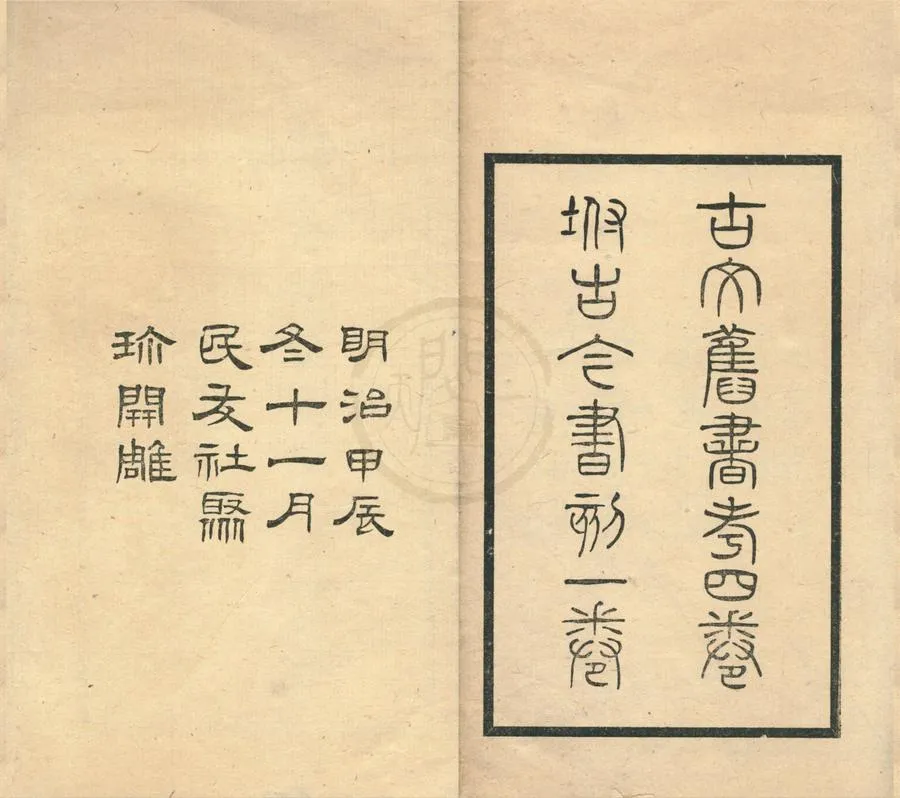 古文舊書考四卷
坿古今書刻一卷
明治甲辰
冬十一月
民友社聚
珍開雕